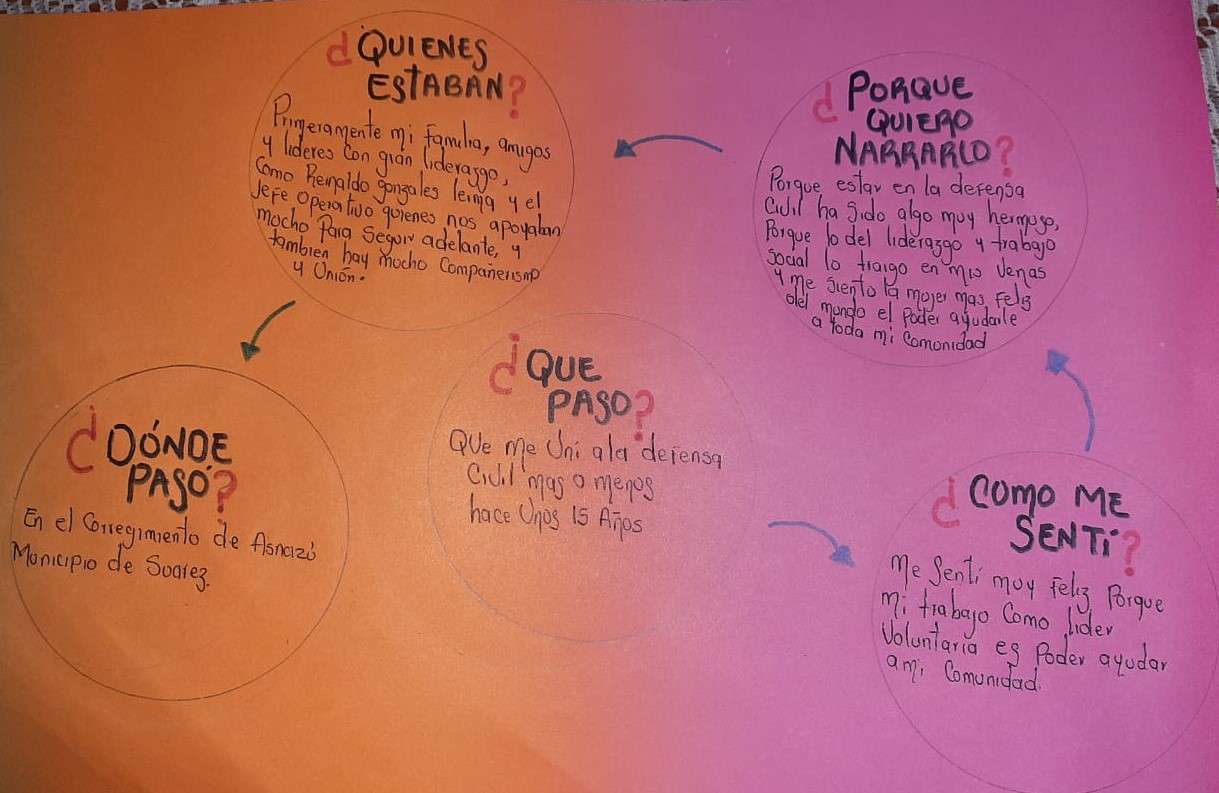 ¿QUIENES
ESTABAN?
Primeramente mi familia, amigos
y lideres con gran liderazgo,
como Reinaldo gonzales lerma y el
Jefe operativo quienes nos apoyaban
mucho Para Seguir adelante, y
tambien hay mucho Compañerismo
y Unión.
¿PORQUE
QUIERO
NARRARLO?
Porque estar en la defensa
Civil ha sido algo muy hermoso,
Porque lo del liderazgo y trabajo
social lo traigo en mis Venas
y me siento la mujer mas feliz
del mundo el poder ayudarle
a toda mi Comunidad
¿DÓNDE
PASÓ?
En el Corregimiento de Asnazú
Municipio de Suarez.
¿QUE
PASO?
QUe me Uni ala defensa
Civil mas o menos
hace Unos 15 Años
¿COMO ME
SENTÍ?
Me Sentí muy Feliz Porque
mi trabajo Como lider
Voluntaria es Poder ayudar
ami Comunidad.